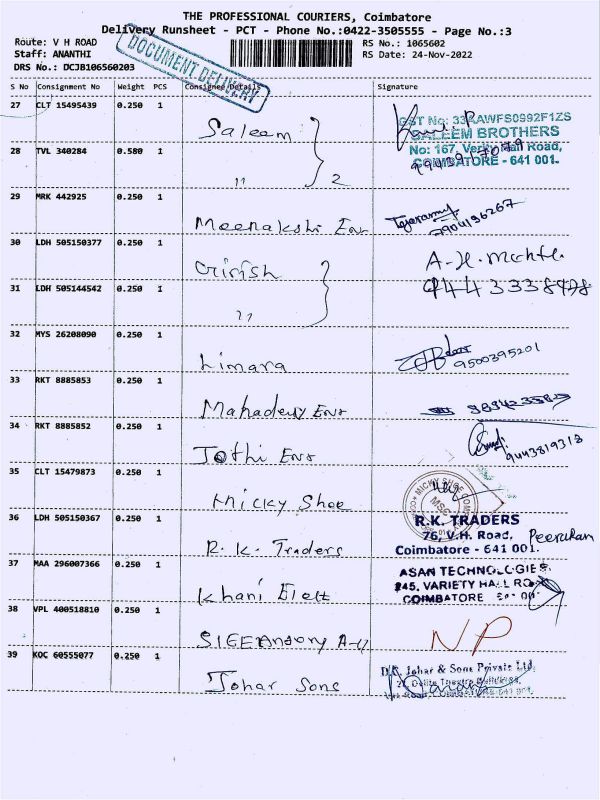 THE PROFESSIONAL COURIERS, Coimbatore
Delivery Runsheet - PCT - Phone No.:0422-3505555 - Page No.:3
Route: V H ROAD
RS No.: 1065602
Staff: ANANTHI
RS Date: 24-Nov-2022
DRS No.: DCJB106560203
DOCUMENT DELIVERY
S No Consignment No Weight PCS Consignee Details Signature
27 CLT 15495439 0.250 1
Saleem
SALEEM BROTHERS
No: 167, Variety Hall Road,
COIMBATORE - 641 001.
28 TVL 340284 0.580 1
" 2
29 MRK 442925 0.250 1
Meenakshi Enr
7904196267
30 LDH 505150377 0.250 1
Girish
31 LDH 505144542 0.250 1
"
32 MYS 26208090 0.250 1
Limara
9500395201
33 RKT 8885853 0.250 1
Mahadevy Enr
34 RKT 8885852 0.250 1
Jothi Enr
9443819318
35 CLT 15479873 0.250 1
Micky Shoe
MICKY SHOE COMPANY
MSC
36 LDH 505150367 0.250 1
R.K. Traders
R.K. TRADERS
76, V.H. Road,
Coimbatore - 641 001.
37 MAA 296007366 0.250 1
Khani Elett
ASAN TECHNOLOGIES
245, VARIETY HALL ROAD
COIMBATORE
38 VPL 400518810 0.250 1
NP
39 KOC 60555077 0.250 1
Johar Sons
D.R. Johar & Sons Private Ltd.